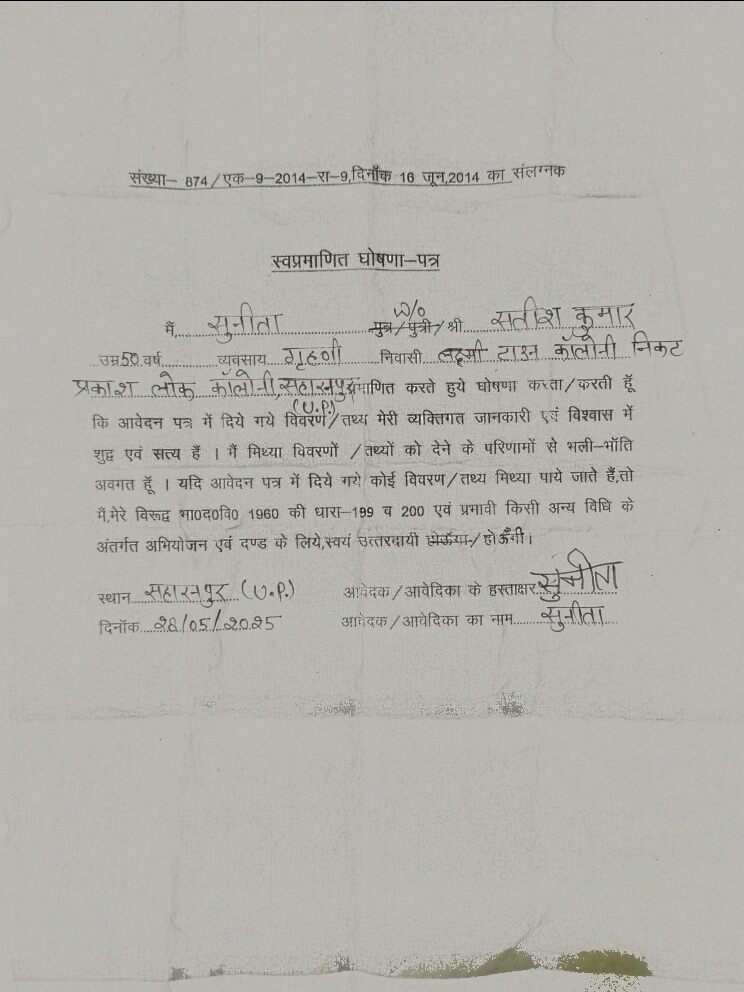 संख्या- 874/एक-9-2014-रा-9,दिनाँक 16 जून,2014 का संलग्नक
स्वप्रमाणित घोषणा-पत्र
W/o
मैं, सुनीता पुत्र/पुत्री/श्री सतीश कुमार
उम्र 50 वर्ष व्यवसाय गृहणी निवासी लक्ष्मी टाउन कॉलोनी निकट
प्रकाश लोक कॉलोनी, सहारनपुर प्रमाणित करते हुये घोषणा करता/करती हूँ
(U.P.)
कि आवेदन पत्र में दिये गये विवरण/तथ्य मेरी व्यक्तिगत जानकारी एवं विश्वास में
शुद्व एवं सत्य हैं । मैं मिथ्या विवरणों /तथ्यों को देने के परिणामों से भली-भाँति
अवगत हूँ । यदि आवेदन पत्र में दिये गये कोई विवरण/तथ्य मिथ्या पाये जाते हैं,तो
मैं,मेरे विरूद्व भा0द0वि0 1960 की धारा-199 व 200 एवं प्रभावी किसी अन्य विधि के
अंतर्गत अभियोजन एवं दण्ड के लिये,स्वयं उत्तरदायी होऊँगा/होऊँगी।
स्थान सहारनपुर (U.P.) आवेदक/आवेदिका के हस्ताक्षर सुनीता
दिनॉक 28/05/2025 आवेदक/आवेदिका का नाम सुनीता